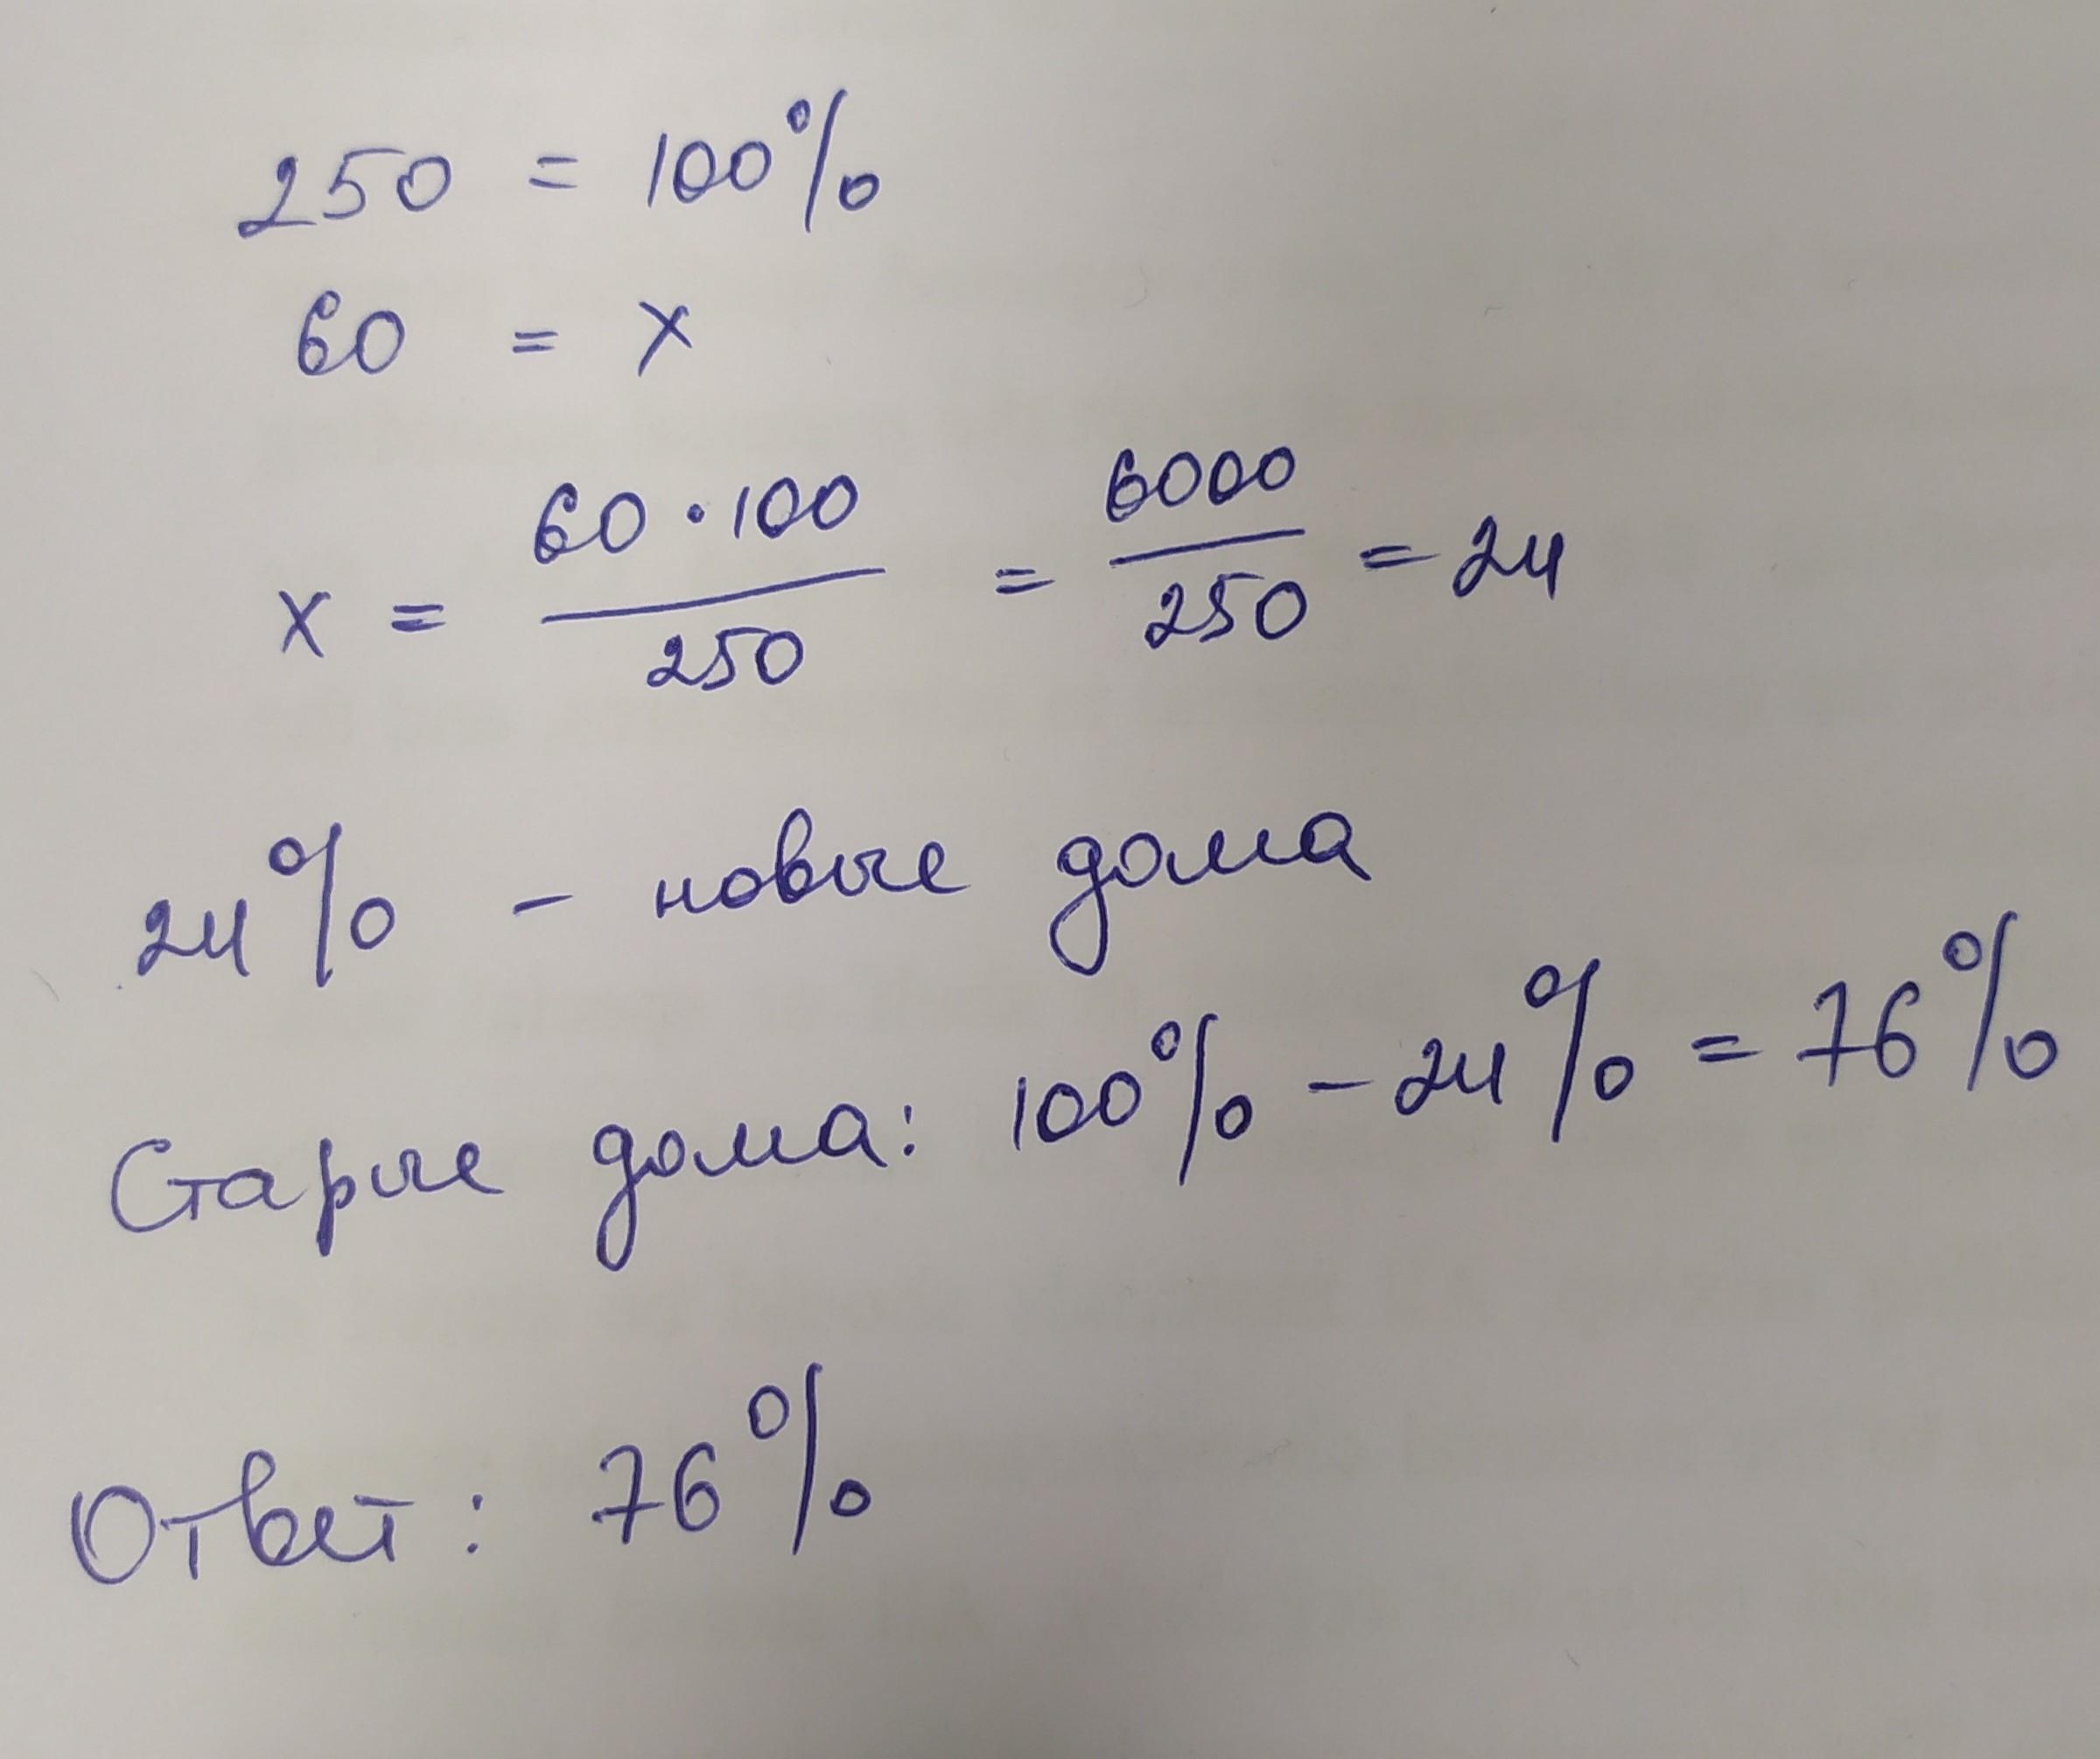 250 = 100%
60 = x
x = 60 · 100 / 250 = 6000 / 250 = 24
24% - новые дома
Старые дома: 100% - 24% = 76%
Ответ: 76%